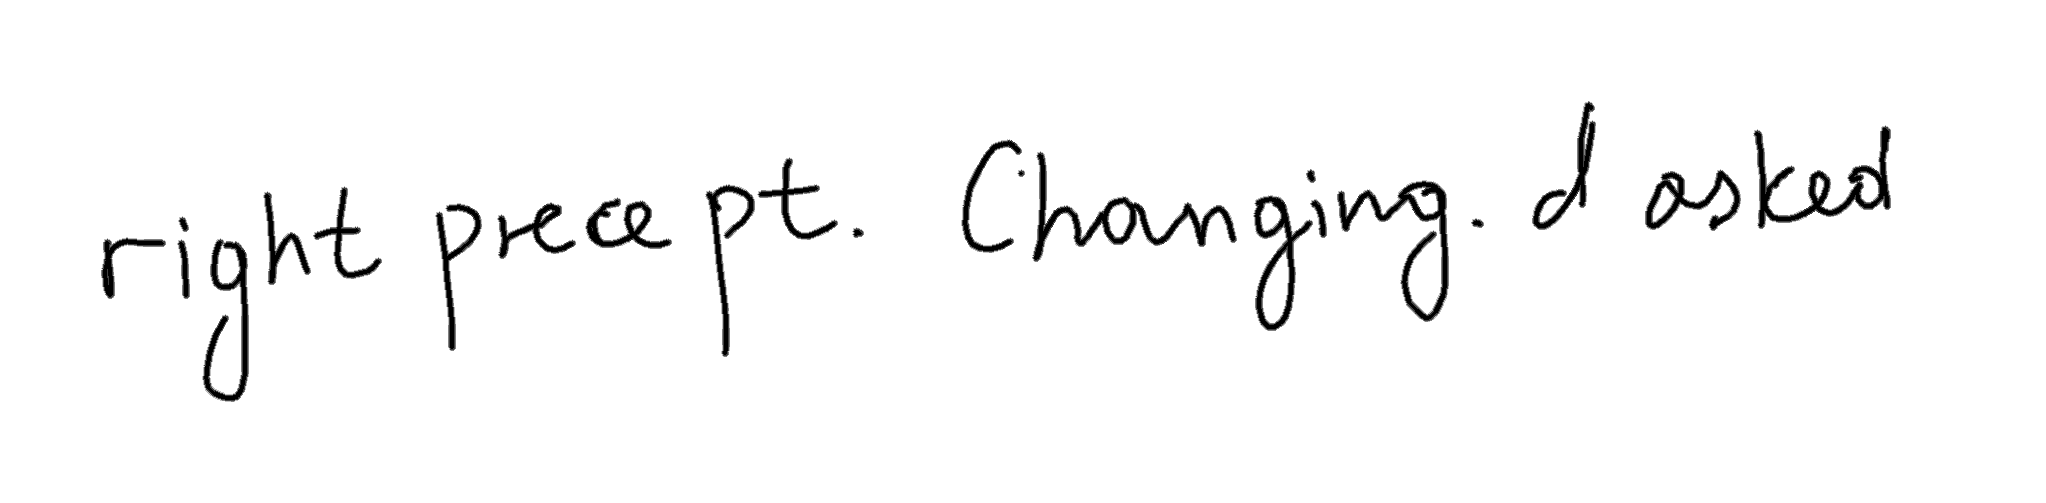 right precept. Changing. d asked